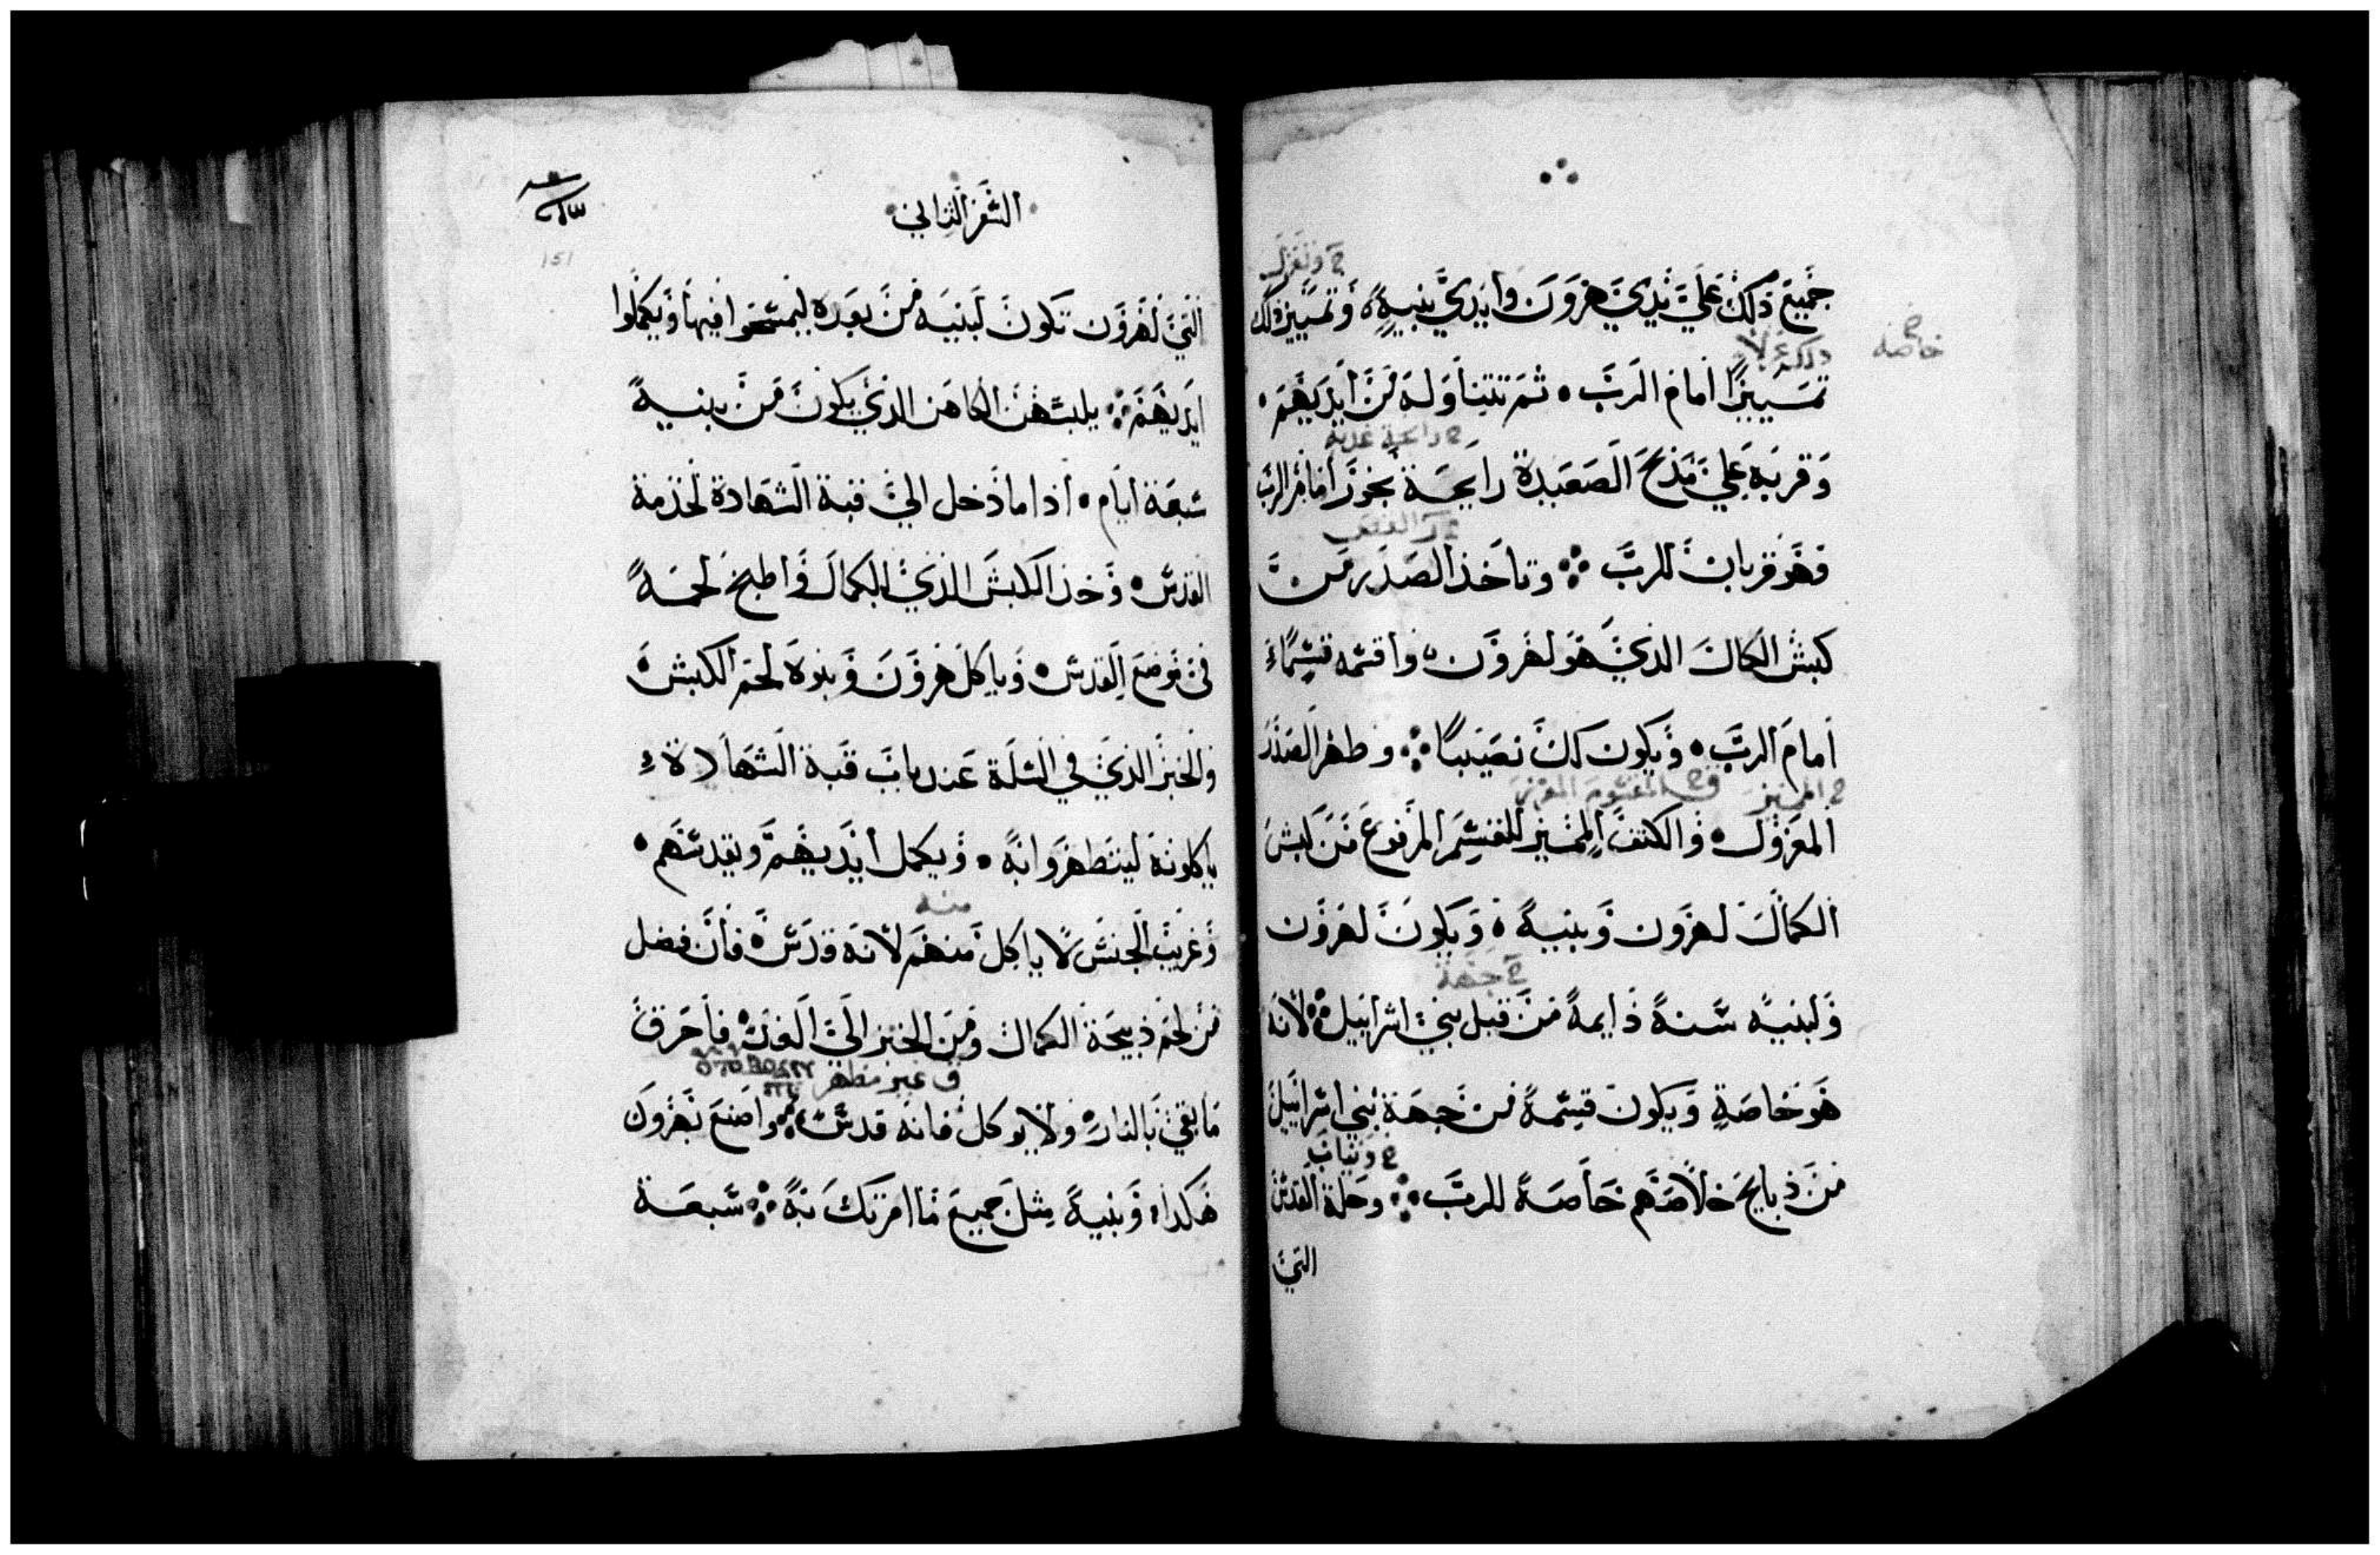 جميع ذلك علي يدي هرون وايدي بنيه وتميز ذلك
تمييزا امام الرب ثم تتناوله من ايديهم
وقربه علي مذبح الصعيدة رايحة بخور امام الرب
فهو قربان للرب وتاخذ الصدر من
كبش الكمال الذي هو لهرون واقسمه قسما
امام الرب ويكون لك نصيبا وطهر الصدر
المعزول والكتف المميز المرفوع من كبش
الكمال لهرون وبنيه ويكون لهرون
ولبنيه سنة دايمة من قبل بني اسراييل لانه
هو خاصة ويكون قسمة من جهة بني اسراييل
من ذبايح خلاصهم خاصة للرب وحلة القدس
التي
خاصة
السفر الثاني
151
التي لهرون تكون لبنيه من بعده ليمسحوا فيها ويكملوا
ايديهم يلبسهن الكاهن الذي يكون من بنيه
سبعة ايام اذا ما دخل الي قبة الشهادة لخدمة
القدس وخذ الكبش الذي للكمال واطبخ لحمه
في موضع القدس وياكل هرون وبنوه لحم الكبش
والخبز الذي في السلة عند باب قبة الشهادة
ياكلونه ليتطهروا به ويكمل ايديهم ويقدسهم
منه
وغريب الجنس لا ياكل منهم لانه قدس فان فضل
من لحم ذبيحة الكمال ومن الخبز الي الغد فاحرق
ق غير مطهر
ما بقي بالنار ولا يوكل فانه قدس واصنع بهرون
هكذا وبنيه مثل جميع ما امرتك به سبعة